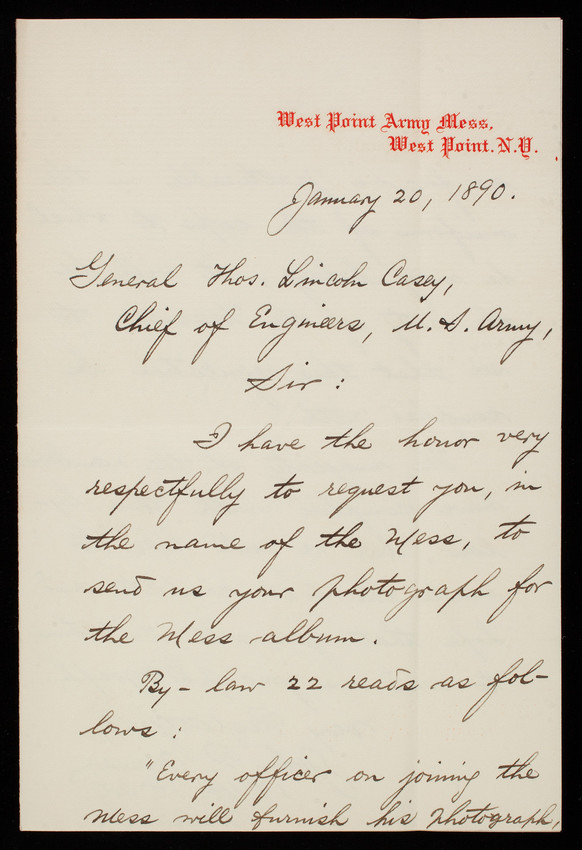 West Point Army Mess,
West Point. N.Y.
January 20, 1890.
General Thos. Lincoln Casey,
Chief of Engineers, U. S. Army,
Sir :
I have the honor very
respectfully to request you, in
the name of the Mess, to
send us your photograph for
the Mess album.
By-law 22 reads as fol-
lows :
"Every officer on joining the
Mess will furnish his photograph,